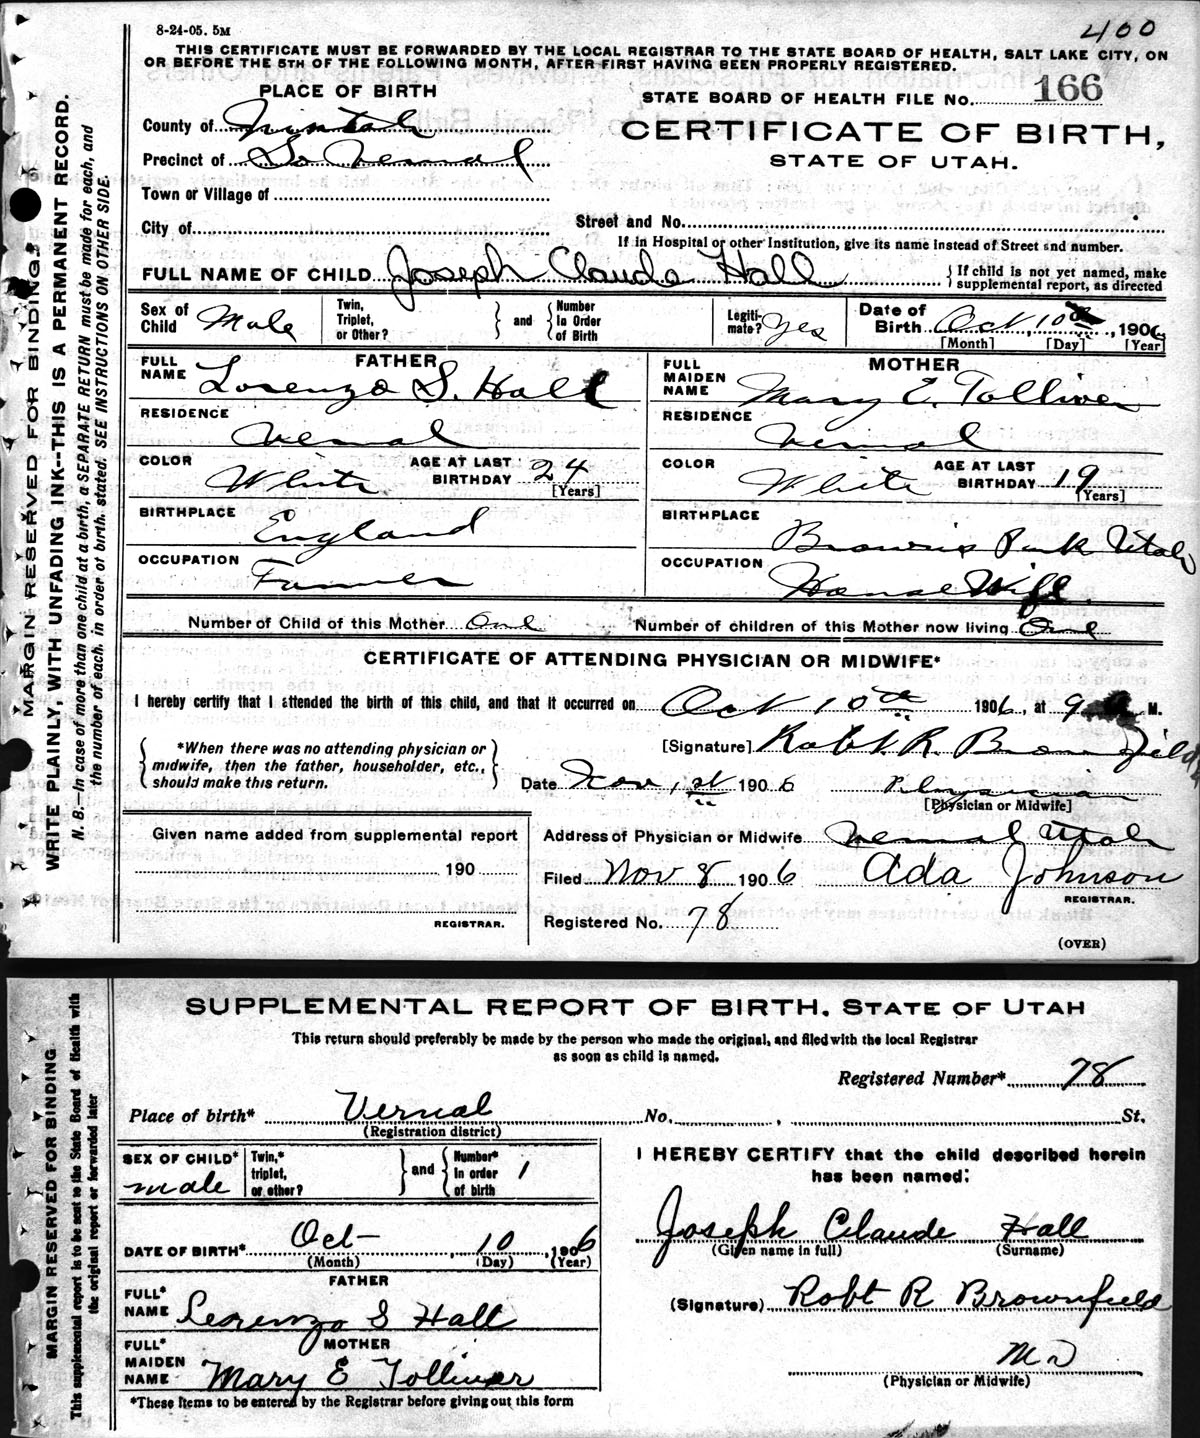 8-24-05. 5M
400
THIS CERTIFICATE MUST BE FORWARDED BY THE LOCAL REGISTRAR TO THE STATE BOARD OF HEALTH, SALT LAKE CITY, ON
OR BEFORE THE 5TH OF THE FOLLOWING MONTH, AFTER FIRST HAVING BEEN PROPERLY REGISTERED.
PLACE OF BIRTH
STATE BOARD OF HEALTH FILE NO. 166
County of Uintah
CERTIFICATE OF BIRTH,
Precinct of So Vernal
STATE OF UTAH.
Town or Village of
City of
Street and No.
If in Hospital or other Institution, give its name instead of Street and number.
FULL NAME OF CHILD Joseph Claude Hall
{ If child is not yet named, make
supplemental report, as directed
Sex of Child Male
Twin, Triplet, or Other?
} and {
Number In Order of Birth
Legiti-mate? Yes
Date of Birth Oct, 10th, 1906
[Month] [Day] [Year]
FATHER
FULL NAME Lorenzo S. Hall
MOTHER
FULL MAIDEN NAME Mary E. Tolliver
RESIDENCE Vernal
RESIDENCE Vernal
COLOR White
AGE AT LAST BIRTHDAY 24
[Years]
COLOR White
AGE AT LAST BIRTHDAY 19
[Years]
BIRTHPLACE England
BIRTHPLACE Browns Park Utah
OCCUPATION Farmer
OCCUPATION House Wife
Number of Child of this Mother One
Number of children of this Mother now living One
CERTIFICATE OF ATTENDING PHYSICIAN OR MIDWIFE*
I hereby certify that I attended the birth of this child, and that it occurred on Oct 10th 1906, at 9 M.
{ *When there was no attending physician or
midwife, then the father, householder, etc.,
should make this return. }
[Signature] Robt. R. Brownfield
Date Nov, 1st 1906
Physician
[Physician or Midwife]
Given name added from supplemental report
190
REGISTRAR.
Address of Physician or Midwife Vernal Utah
Filed Nov 8 1906 Ada Johnson
REGISTRAR.
Registered No. 78
(OVER)
MARGIN RESERVED FOR BINDING.
WRITE PLAINLY, WITH UNFADING INK--THIS IS A PERMANENT RECORD.
N. B.—In case of more than one child at a birth, a SEPARATE RETURN must be made for each, and
the number of each, in order of birth, stated. SEE INSTRUCTIONS ON OTHER SIDE.
SUPPLEMENTAL REPORT OF BIRTH. STATE OF UTAH
This return should preferably be made by the person who made the original, and filed with the local Registrar
as soon as child is named.
Registered Number* 78
Place of birth* Vernal No. , St.
(Registration district)
SEX OF CHILD* male
Twin,* triplet, or other?
} and {
Number* In order of birth 1
DATE OF BIRTH* Oct- , 10 , 1906
(Month) (Day) (Year)
FATHER
FULL* NAME Lorenzo S Hall
MOTHER
FULL* MAIDEN NAME Mary E Tolliver
*These items to be entered by the Registrar before giving out this form
I HEREBY CERTIFY that the child described herein
has been named:
Joseph Claude Hall
(Given name in full) (Surname)
(Signature) Robt R Brownfield
M D
(Physician or Midwife)
MARGIN RESERVED FOR BINDING
This supplemental report is to be sent to the State Board of Health with
the original report or forwarded later